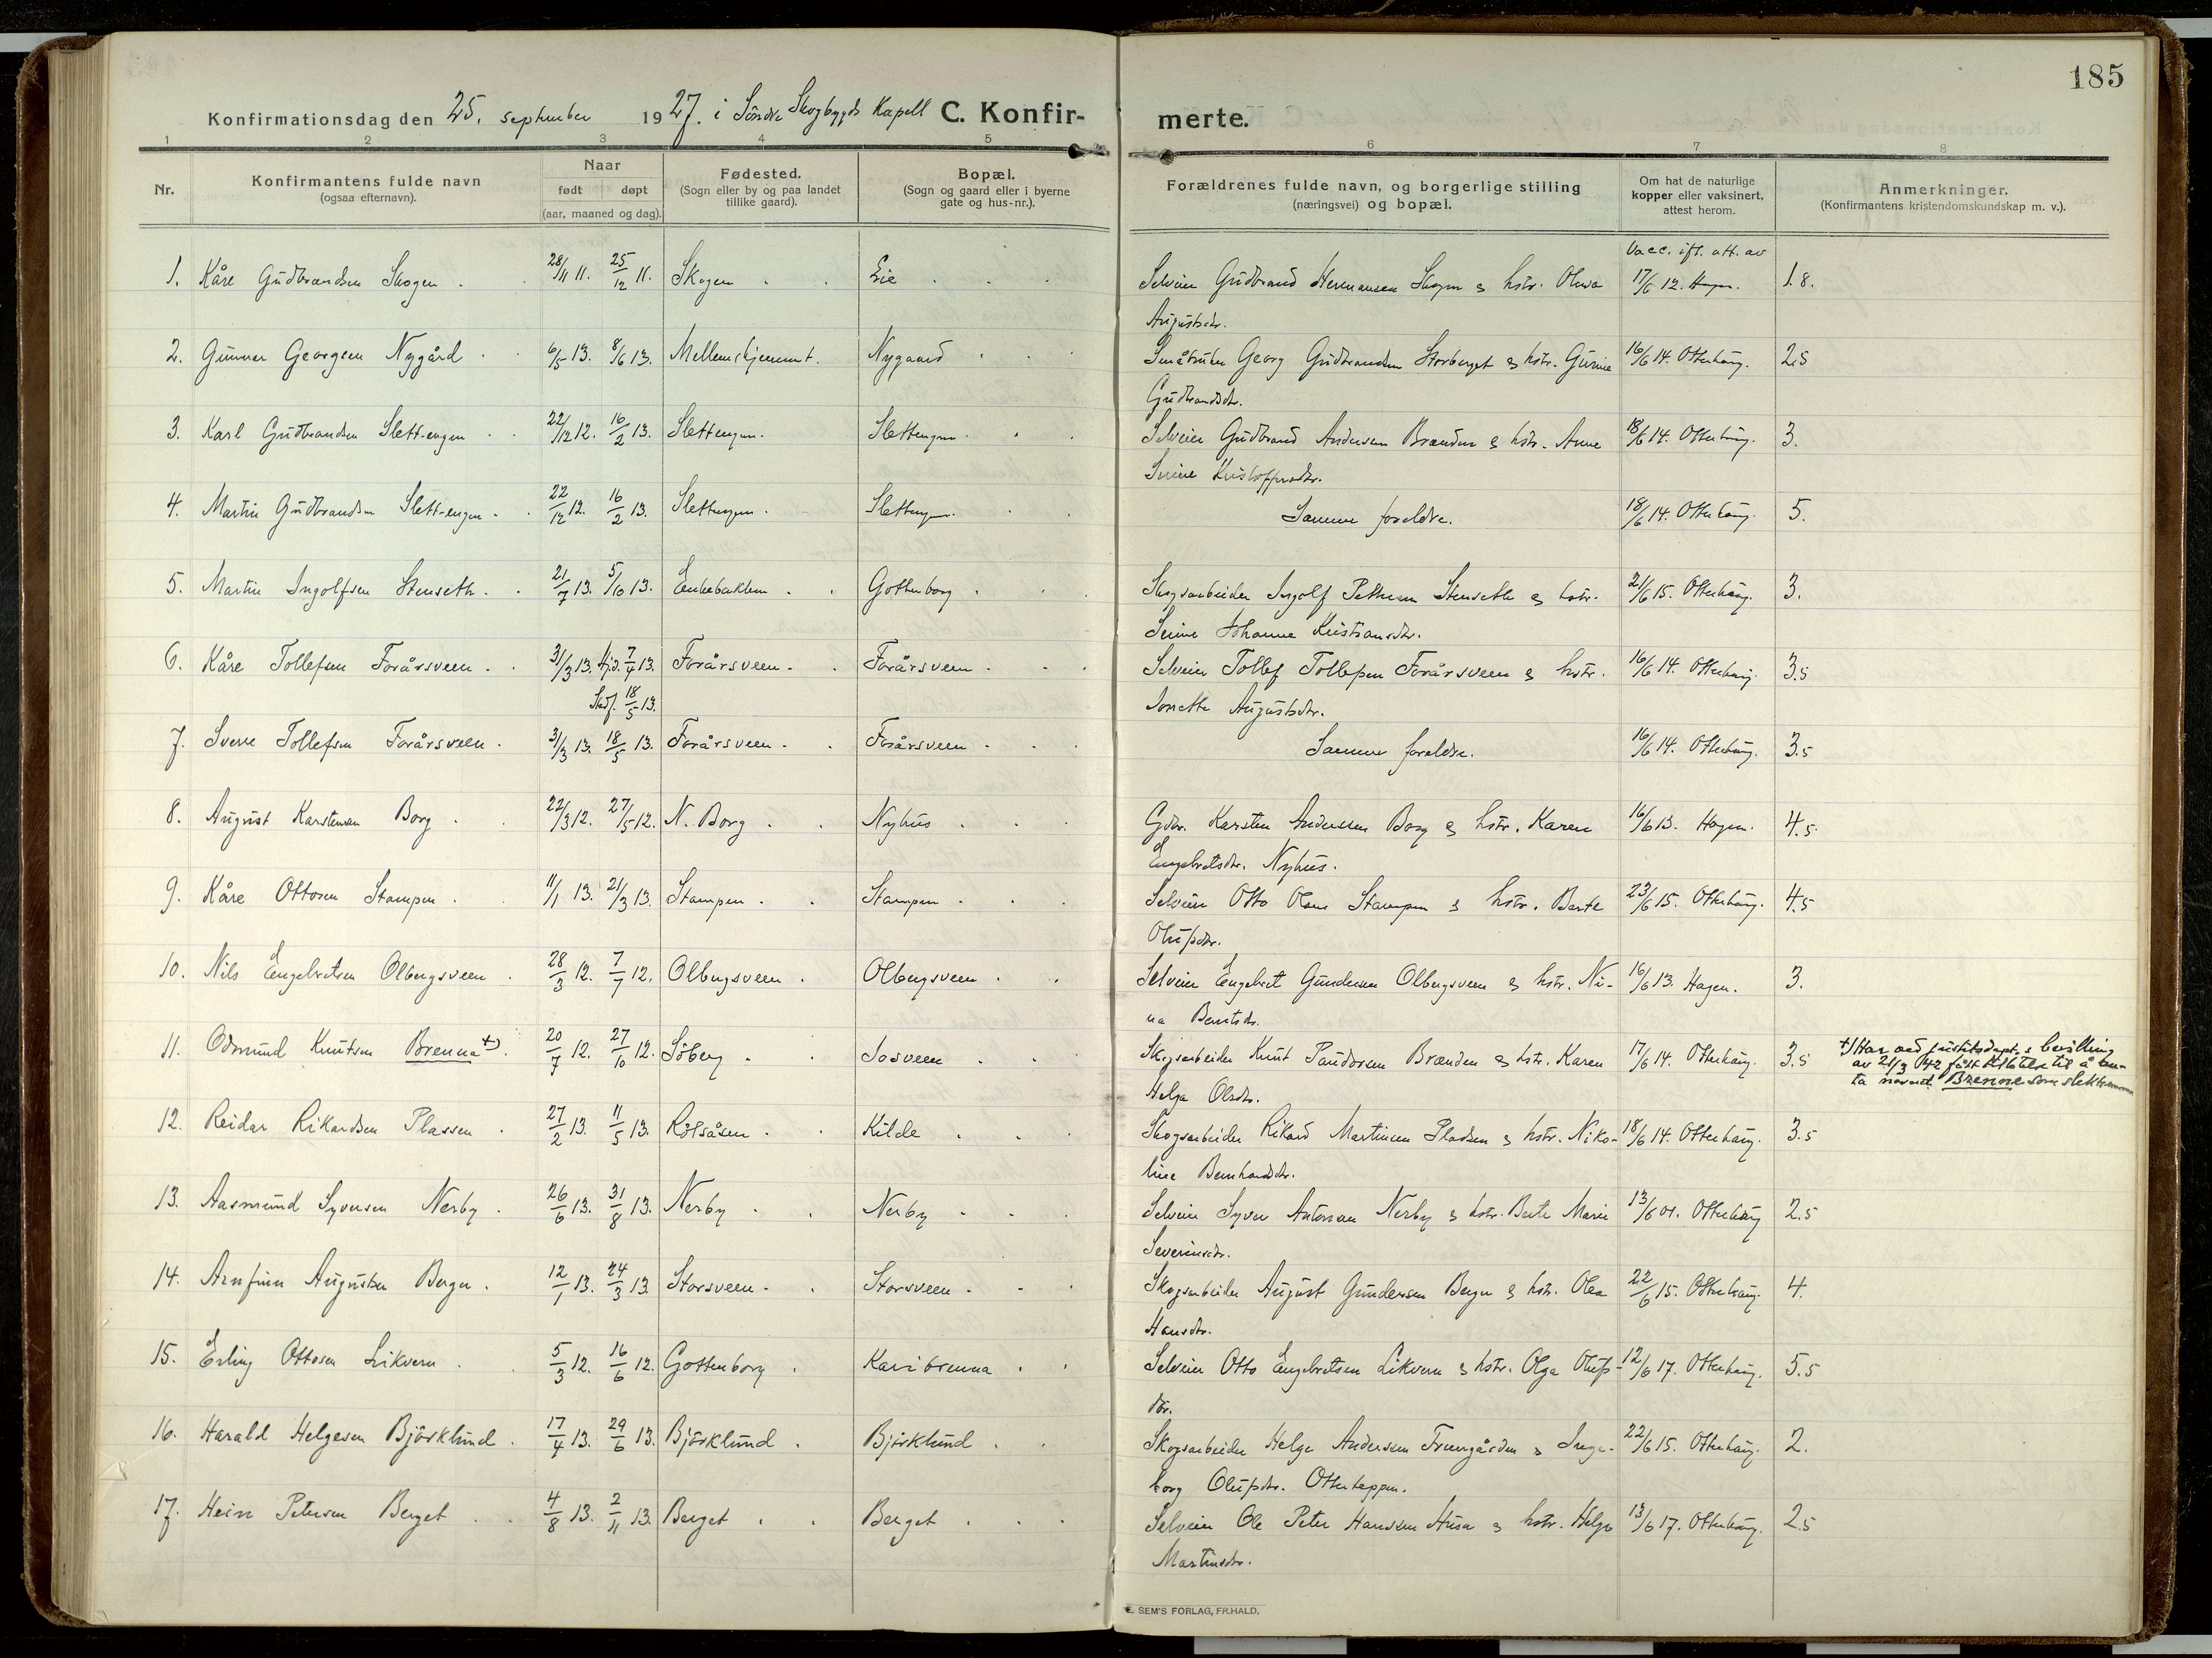 185
Konfirmationsdag den 25. september 1927. i Söndre Skogbygds Kapell C. Konfir- merte.
1 2 3 4 5 6 7 8
Nr. Konfirmantens fulde navn (ogsaa efternavn). Naar født døpt (aar, maaned og dag). Fødested. (Sogn eller by og paa landet tillike gaard). Bopæl. (Sogn og gaard eller i byerne gate og hus-nr.). Forældrenes fulde navn, og borgerlige stilling (næringsvei) og bopæl. Om hat de naturlige kopper eller vaksinert, attest herom. Anmerkninger. (Konfirmantens kristendomskundskap m. v.).
Vacc. ifl. att. av
1. Kåre Gudbrandsen Skogen 28/11 11. 25/12 11. Skogen Eie Selveier Gudbrand Hermansen Skogen & hstr. 17/6 12. Hagen. 1.8.
Augustsdr.
2. Gunnar Georgsen Nygård 6/5 13. 8/6 13. Nygaard Småbruker Georg Gudbrandsen Storberget & hstr. Gunine 16/6 14. Otterhaug. 2.5
Gudbrandsdr.
3. Karl Gudbrandsen Slett-engen 22/12 12. 16/2 13. Slettengen. Slettengen. Selveier Gudbrand Andersen Brænden & hstr. Anne 18/6 14. Otterhaug. 3.
Serine Kristoffersdr.
4. Martin Gudbrandsen Slett-engen 22/12 12. 16/2 13. Slettengen. Slettengen. Samme foreldre. 18/6 14. Otterhaug. 5.
5. Martin Ingolfsen Stenseth 21/7 13. 5/10 13. Enkebakken Gottenborg Skogsarbeider Ingolf Pettersen Stenseth & hstr. 21/6 15. Otterhaug. 3.
Serine Johanne Kristiansdr.
6. Kåre Tollefsen Forårsveen 31/3 13. Hjd. 7/4 13. Forårsveen Forårsveen Selveier Tollef Tollefsen Forårsveen & hstr. 16/6 14. Otterhaug. 3.5
Stadf. 18/5 13. Augustsdr.
7. Sverre Tollefsen Forårsveen 31/3 13. 18/5 13. Forårsveen Forårsveen Samme foreldre. 16/6 14. Otterhaug. 3.5
8. August Karstensen Borg 22/3 12. 27/5 12. N. Borg Nyhus Gdbr. Karsten Andersen Borg & hstr. Karen 16/6 13. Hagen. 4.5.
Engebretsdr. Nyhus.
9. Kåre Ottosen Stampen 11/1 13. 21/3 13. Stampen Stampen Selveier Otto Olsen Stampen & hstr. Berte 23/6 15. Otterhaug. 4.5
Olufsdr.
10. Nils Engebretsen Olbergsveen 28/3 12. 7/7 12. Olbergsveen Olbergsveen Selveier Engebret Gundersen Olbergsveen & hstr. Ni- 16/6 13. Hagen. 3.
na Berntsdr.
11. Odmund Knutsen Brenna +) 20/7 12. 27/10 12. Söberg Josveen Skogsarbeider Knut Paudorsen Brænden & hstr. Karen 17/6 14. Otterhaug. 3.5 +) Har ved justitsdept.s bevilling
Helga Olsdr. av 21/3 1942 fått tillatelse til å an-
ta navnet Brenne som slektsnavn
12. Reidar Rikardsen Plassen 27/2 13. 11/5 13. Rölsåsen Kilde Skogsarbeider Rikard Martinsen Pladsen & hstr. Niko- 18/6 14. Otterhaug. 3.5
line Bernhardsdr.
13. Aasmund Syversen Nerby 26/6 13. 31/8 13. Nerby Nerby Selveier Syver Antonsen Nerby & hstr. Berte Marie 13/6 01. Otterhaug 2.5
Severinsdr.
14. Arnfinn Augustsen Berger 12/1 13. 24/3 13. Storsveen Storsveen Skogsarbeider August Gundersen Berger & hstr. Olea 22/6 15. Otterhaug. 4.
Hansdr.
15. Erling Ottosen Likvern 5/3 12. 16/6 12. Gottenborg Karibrenna Selveier Otto Engebretsen Likvern & hstr. Olga Olufs- 12/6 17. Otterhaug. 5.5
dtr.
16. Harald Helgesen Björklund 17/4 13. 29/6 13. Björklund Björklund Skogsarbeider Helge Andersen & Inge- 22/6 15. Otterhaug. 2.
borg Olufsdr. Otterteppen.
17. Hein Petersen Berget 4/8 13. 2/11 13. Berget Berget Selveier Ole Peter Hansen Husa & hstr. Helga 13/6 17. Otterhaug. 2.5
Martinsdr.
E. SEM'S FORLAG, FR.HALD.